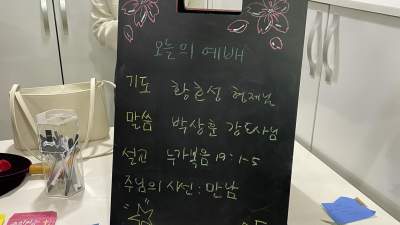 오늘의 예배
기도 황호성 형제님
말씀 박상훈 강도사님
설교 누가복음 19:1-5
주님의 시선:만남